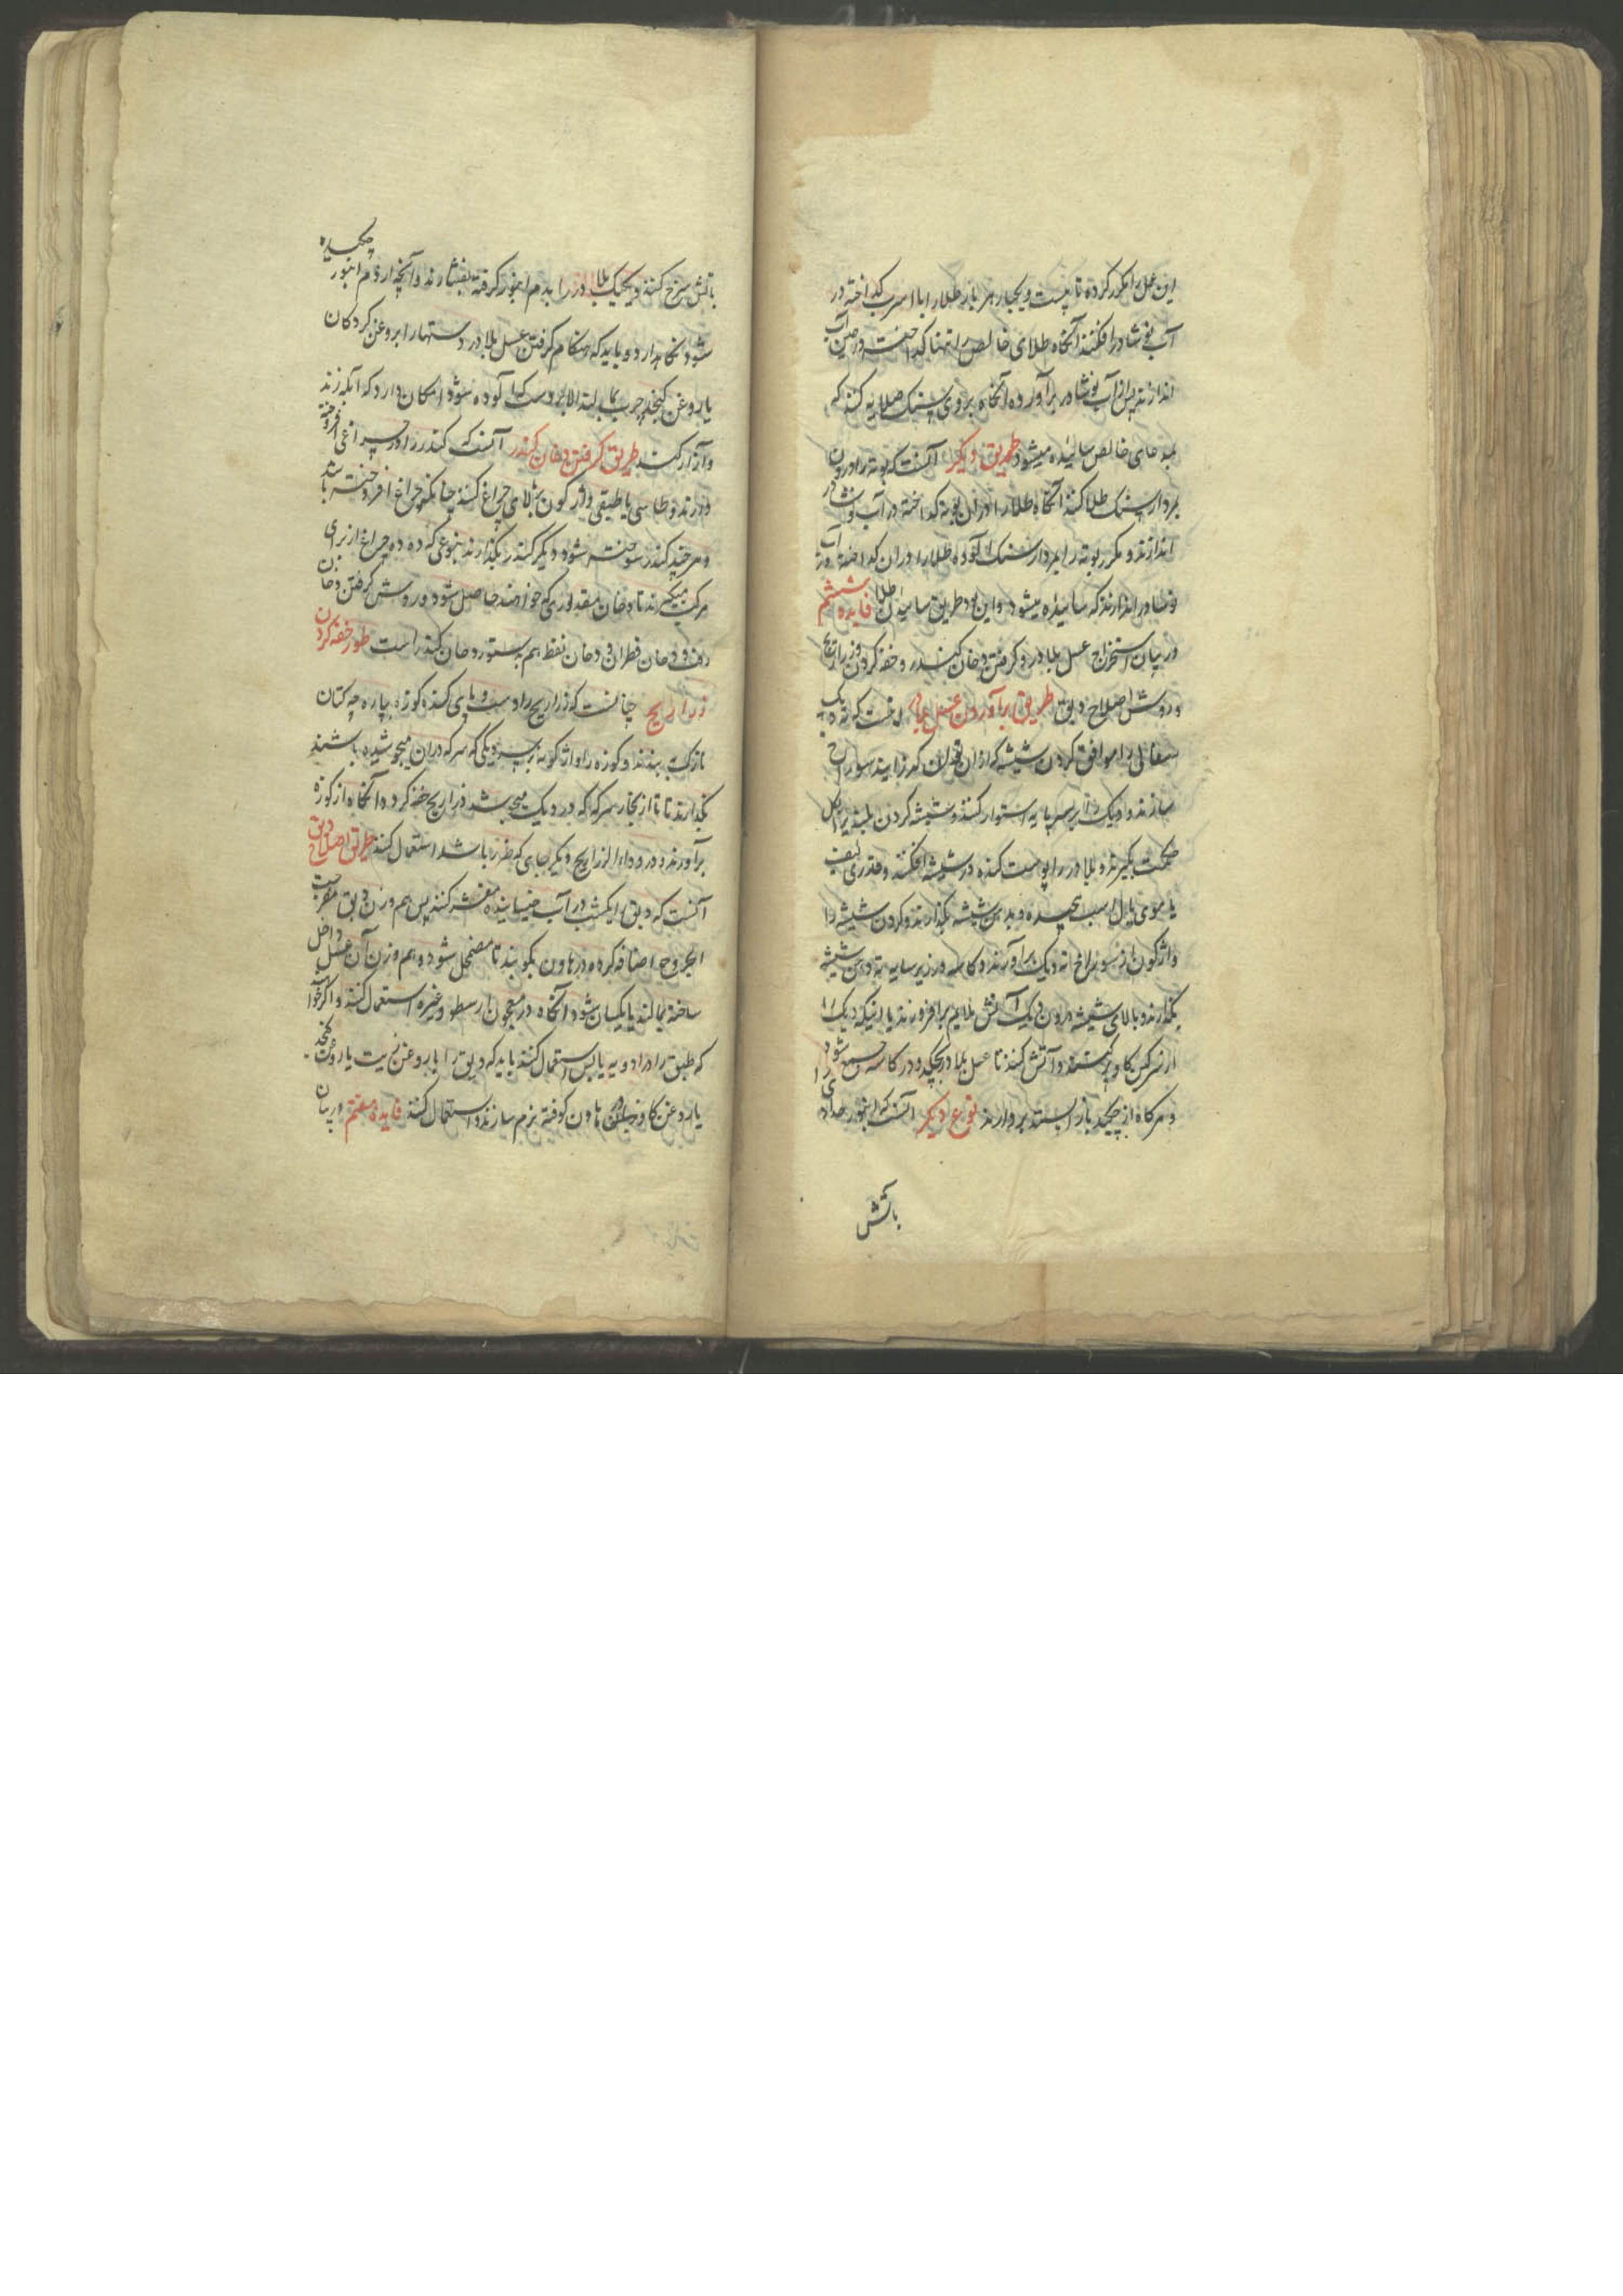 این عمل را مکرر کرده تا بیست و یکبار هر بار طلا را با سرب گداخته در
آب نوشادر افکنند آنگاه طلای خالص را تنها گداخته در همین آب
اندازند پس از آب نوشادر برآورده آنگاه بر روی سنک صلایه کنند که
بمدعای خالص سائیده میشود طریق دیگر آنست که بوته را درون
بمردار سنک طلا کنند آنگاه طلا را در آن بوته گداخته در آب نوشادر
اندازند و مکرر بوته را بمردار سنک آلوده طلا را در آن گداخته در آب
نوشادر اندازند که سائیده میشود و این بود طریق سائیدن طلا فایده ششم
در بیان استخراج عسل بلادر و گرفتن دخان کندر و خفه کردن ذراریح
و روش اصلاح دبق طریق برآوردن عسل بلادر آنست که ته دیک
سفالی را موافق کردن شیشه که از آن توان گذرانید سوراخ
سازند و دیک را بر سر پایه استوار کنند و شیشه گردن بلند را گل
حکمت بگیرند و بلادر را پوست کنده در شیشه افکنند و قدری لیف
یا موی یال اسب پیچیده و بدهن شیشه بگذارند و گردن شیشه را
واژگون از سوراخ ته دیک برآورند و کاسه در زیر سایه ته دهن شیشه
بگذارند و بالای شیشه درون دیک آتش ملایم برافروزند یا اینکه دیک را
از سرگین گاو پر کنند و آتش کنند تا عسل بلادر بچکد و در کاسه جمع شود
و هرگاه از چکیدن باز ایستد بردارند نوع دیگر آنست که انبور حدادی را
بآتش
بآتش سرخ کنند و یکیک بلادر را بدم انبور گرفته بفشارند و آنچه از دم انبور چکیده
شود نگاهدارد و باید که هنگام گرفتن عسل بلادر دستها را بروغن گردکان
یا روغن کنجد چرب بمالند الا بهر دست که آلوده شود امکان دارد که آبله زند
و آزار کند طریق گرفتن دخان کندر آنست که کندر را در چراغی افروخته
دارند و طاسی یا طبقی واژگون ببالای چراغ کنند چنانکه چراغ افروخته باشد
و هر چند کندر سوخته شود دیگر کندر بگذارند بنوعی که دود چراغ از برای
مرکب میگیرند تا دخان مقداری که خواهند حاصل شود و روش گرفتن دخان
زفت و دخان قطران و دخان نفط هم بدستور دخان کندر است طور خفه کردن
ذراریح چنانست که ذراریح را دست و پای کنند و کوزه بپارچه کتان
نازک ببندند و کوزه را واژگونه بر سر دیکی که سرکه در آن میجوشیده باشند
بگذارند تا از بخار سرکه که در دیک میجوشد ذراریح خفه کرده آنگاه از کوزه
برآورند و در دواء الذراریح و دیگر جای که ضرر باشد استعمال کنند طریق اصلاح دبق
آنست که دبق را یکشب در آب خیسانیده مقشر کنند پس هم وزن دبق مغز حب
الخروع اضافه کرده در هاون بکوبند تا مضمحل شود و هم وزن آن عسل داخل
ساخته بمالند تا یکسان شود آنگاه در معجون ارسطو و غیره استعمال کنند و اگر خواهند
که طبق را در ادویه یابس استعمال کنند باید که دبق را با روغن زیت یا روغن کنجد
یا روغن گاو در هاون کوفته نرم سازند و استعمال کنند فایده هفتم در بیان